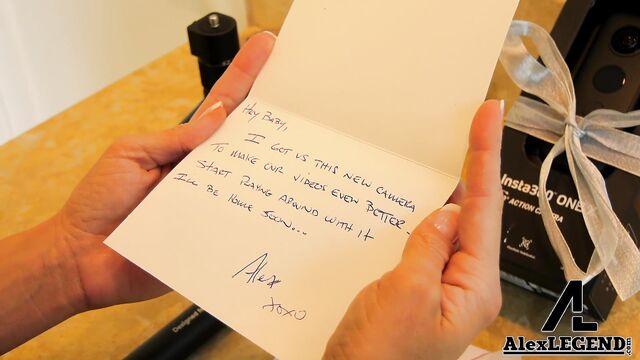 Hey Baby,
I got us this new camera
to make our videos even better.
Start playing around with it
I'll be home soon...
Alex
xoxo
Insta360 ONE
ACTION CAMERA
Designed
AL
AlexLEGEND.com